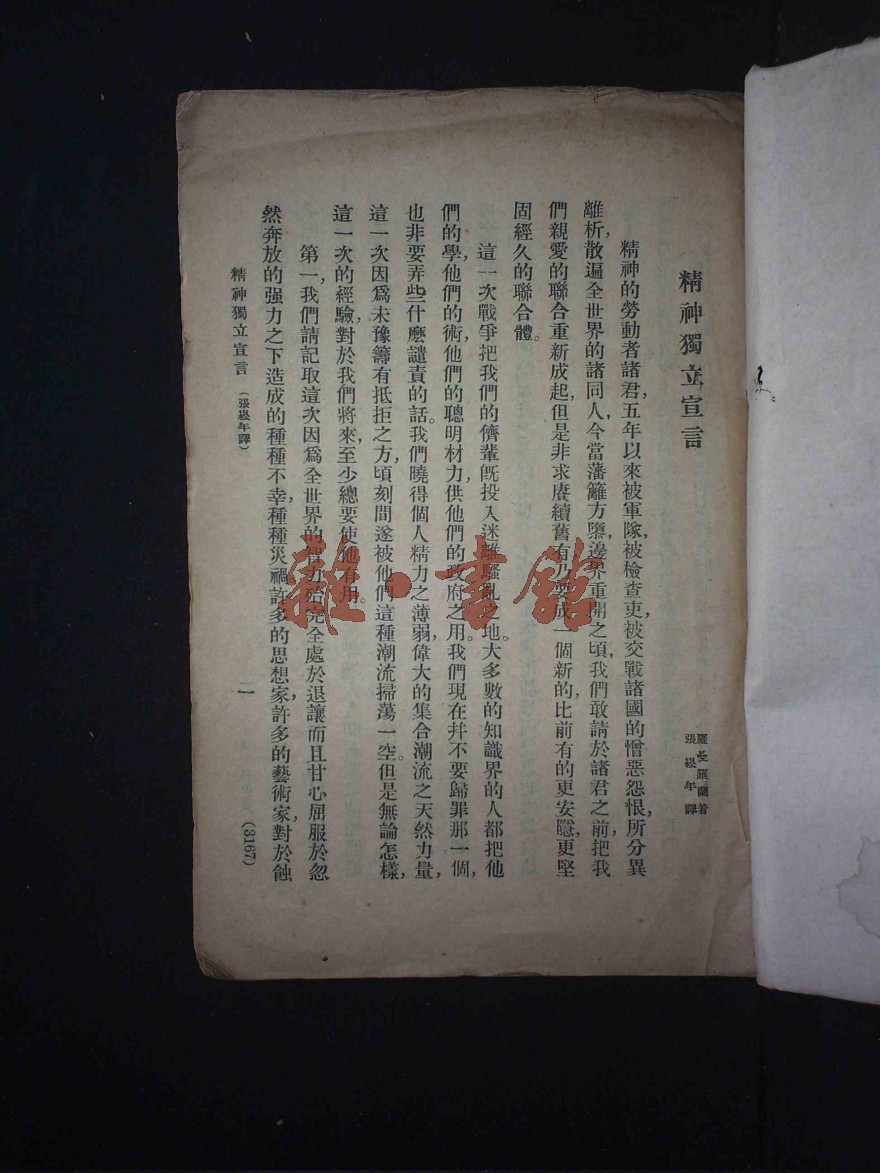 精神獨立宣言
羅曼羅蘭著
張崧年譯
精神的勞動者諸君,五年以來被軍隊,被檢查吏,被交戰諸國的憎惡怨恨,所分異
離析,散遍全世界的諸同人,今當藩籬方隳,邊界重開之頃,我們敢請於諸君之前,把我
們親愛的聯合重新成起,但是非求賡續舊有,乃要成一個新的,比前有的更安隱,更堅
固經久的聯合體。
這一次戰爭把我們的儕輩旣投入迷離騷亂之地。大多數的知識界的人都把他
們的學,他們的術,他們的聰明材力,供他們的政府之用。我們現在幷不要歸罪那一個,
也非要弄些什麽譴責的話。我們曉得個人精力之薄弱,偉大的集合潮流之天然力量,
這一次因爲未豫籌有抵拒之方,頃刻間遂被他們這種潮流掃蕩一空。但是無論怎樣,
這一次的經驗,對於我們將來,至少總要使他有用。
第一,我們請記取這次因爲全世界的智力始完全處於退讓而且甘心屈服於忽
然奔放的强力之下造成的種種不幸,種種災禍許多的思想家,許多的藝術家,對於蝕
精神獨立宣言 (張崧年譯)
二
(3167)
雜·書館